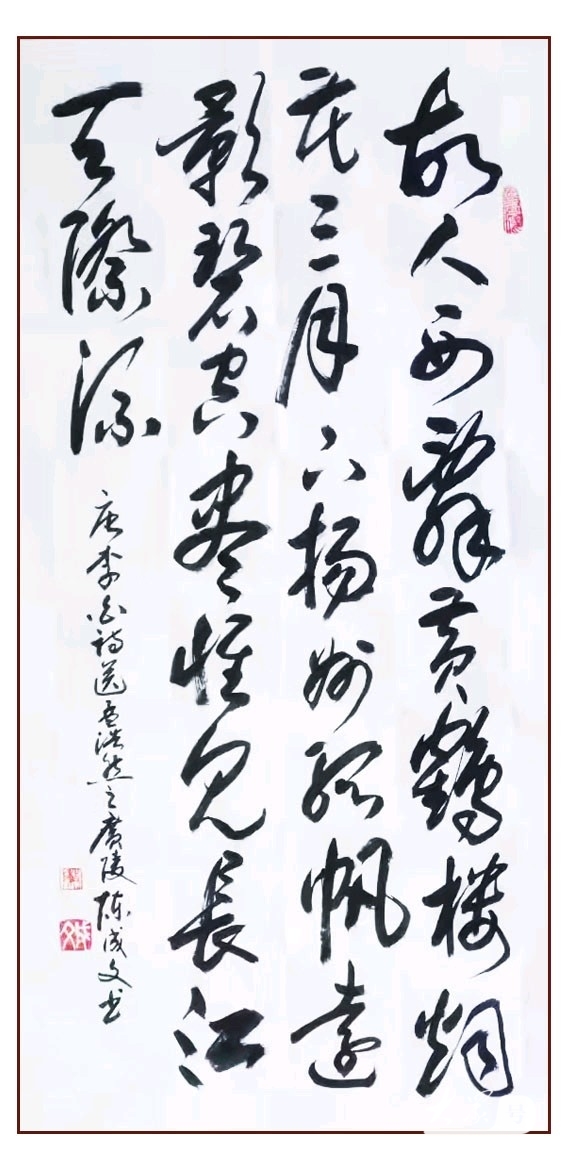 故人西辭黄鶴楼烟
花三月下揚州孤帆遠
影碧空盡惟見長江
天際流
唐李白詩送孟浩然之廣陵 陳成文书